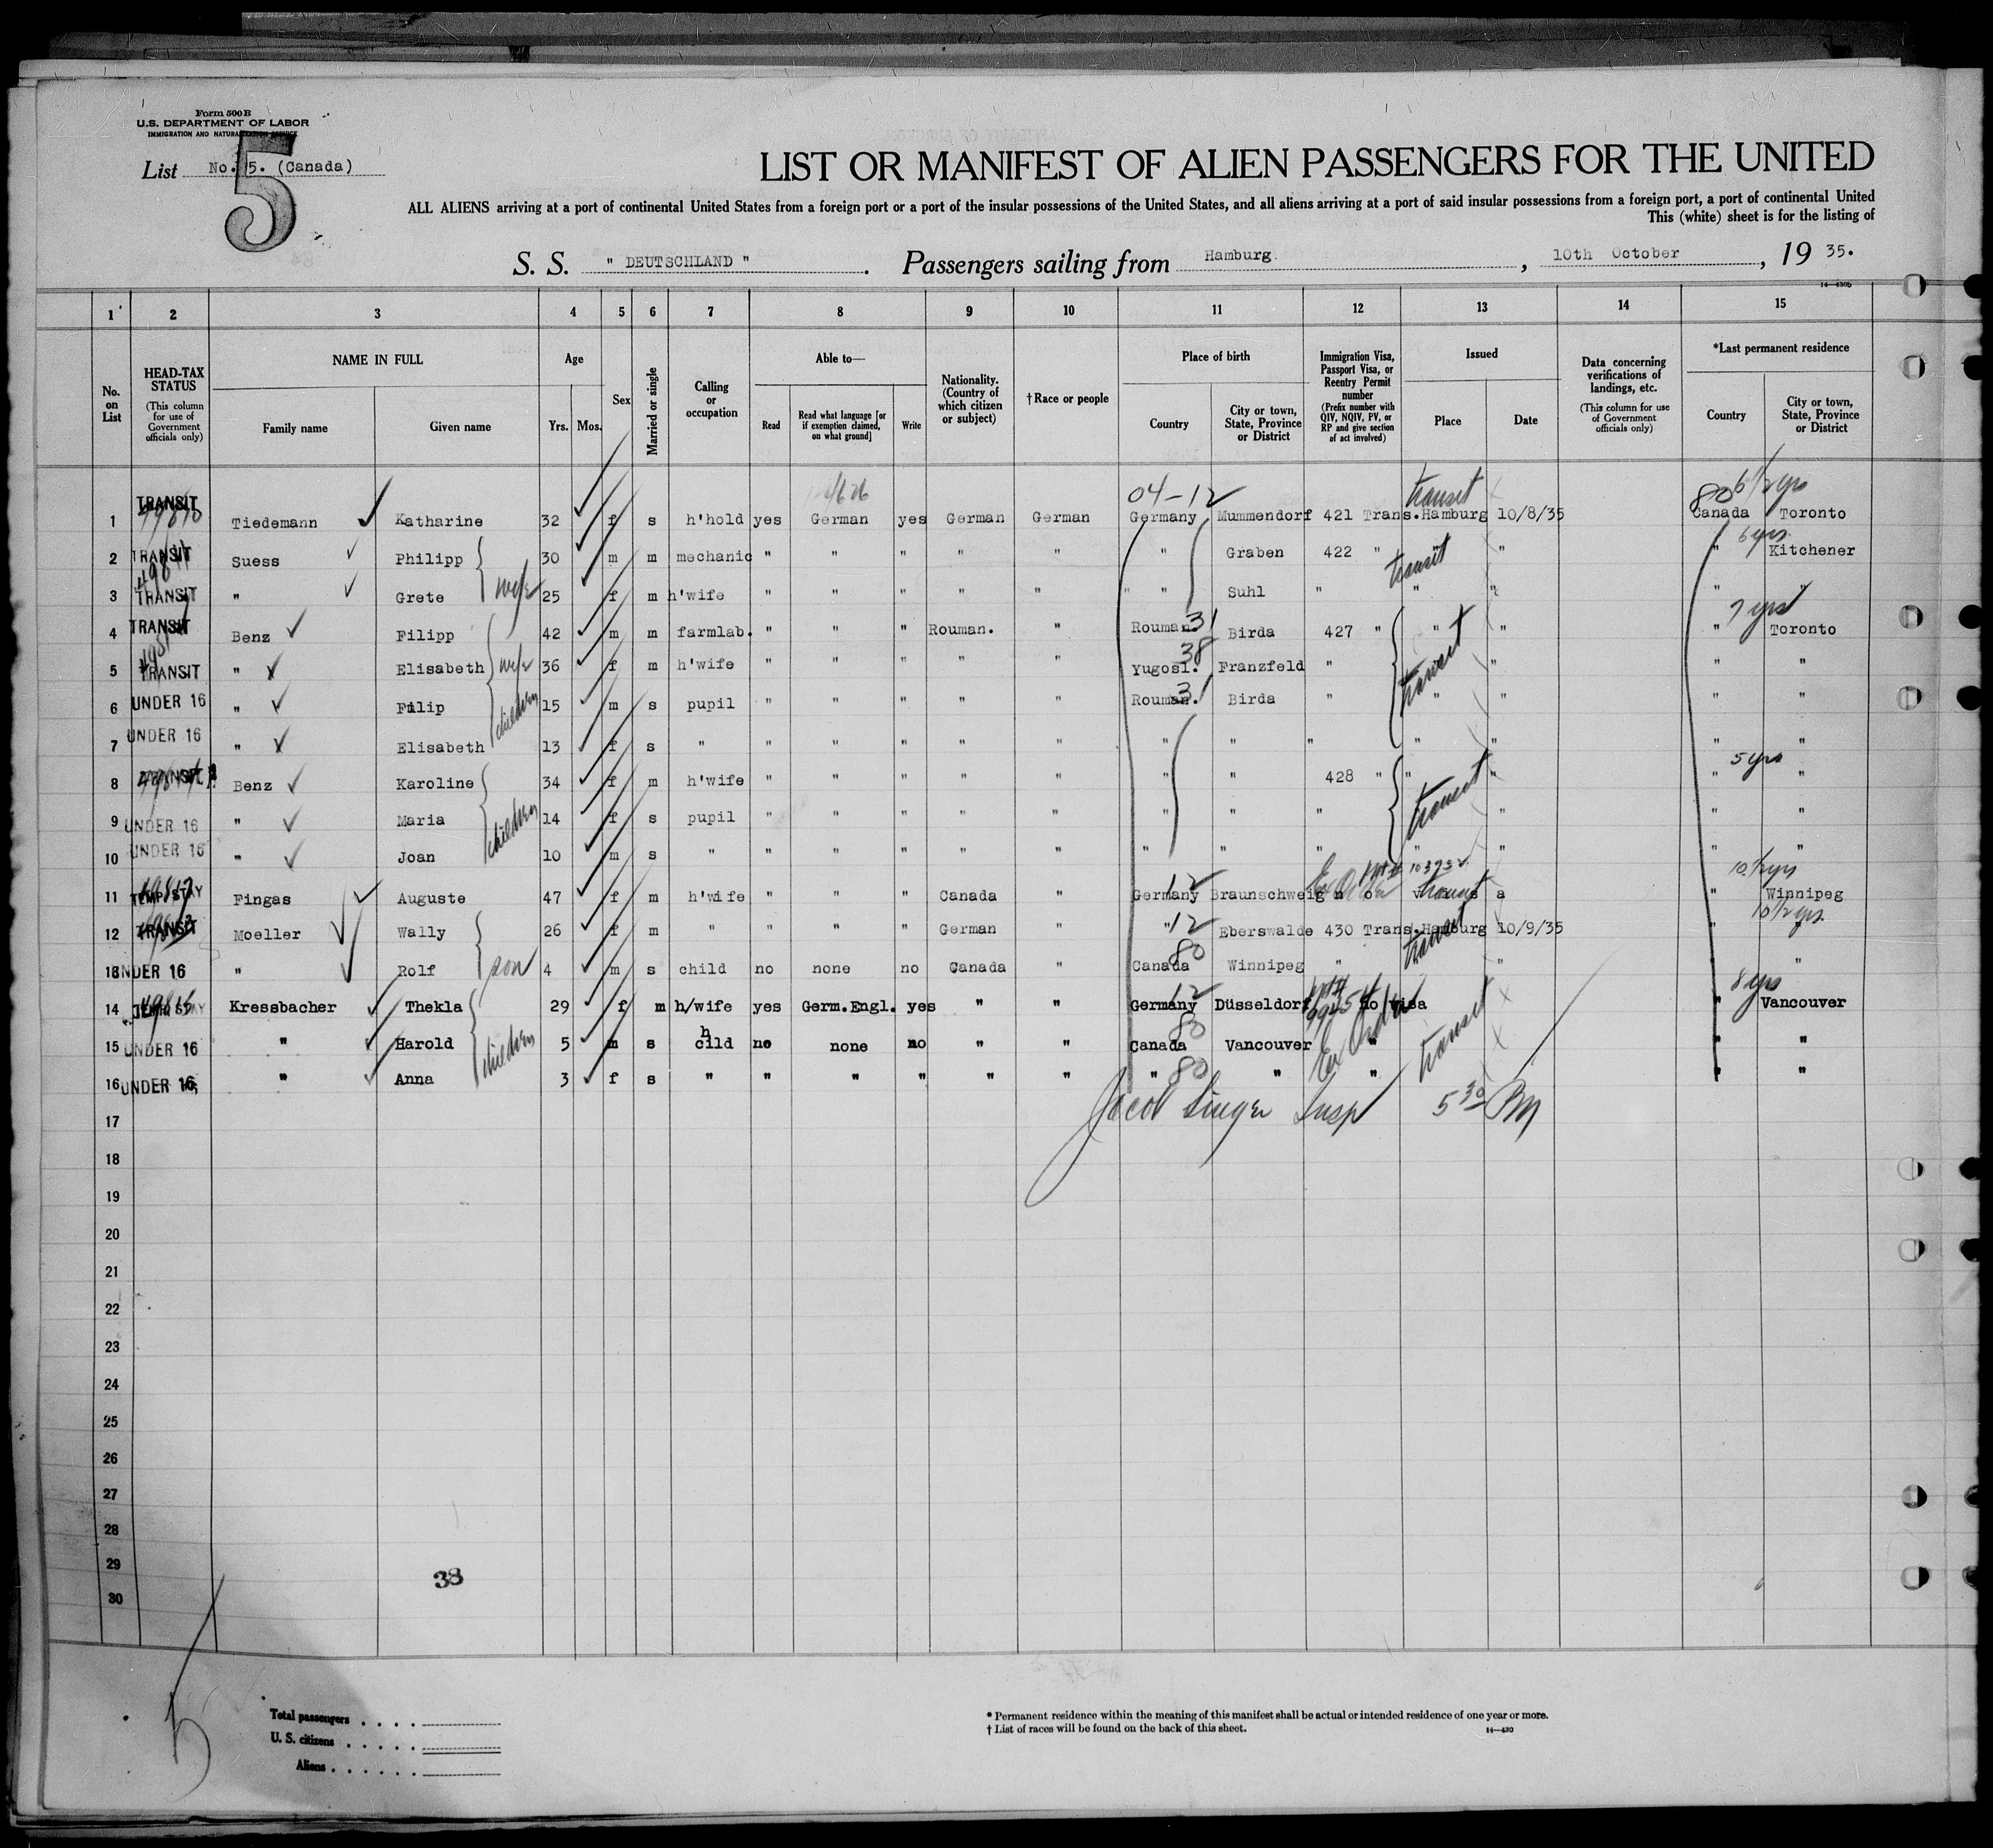 Form 500B
U.S. DEPARTMENT OF LABOR
IMMIGRATION AND NATURALIZATION SERVICE
List No. 5. (Canada)
5
LIST OR MANIFEST OF ALIEN PASSENGERS FOR THE UNITED
ALL ALIENS arriving at a port of continental United States from a foreign port or a port of the insular possessions of the United States, and all aliens arriving at a port of said insular possessions from a foreign port, a port of continental United
This (white) sheet is for the listing of
S. S. " DEUTSCHLAND " . Passengers sailing from Hamburg , 10th October , 19 35.
14—430b
1 2 3 4 5 6 7 8 9 10 11 12 13 14 15
No. on List
HEAD-TAX STATUS (This column for use of Government officials only)
NAME IN FULL
Family name Given name
Age
Yrs. Mos.
Sex
Married or single
Calling or occupation
Able to—
Read Read what language [or if exemption claimed, on what ground] Write
Nationality. (Country of which citizen or subject)
†Race or people
Place of birth
Country City or town, State, Province or District
Immigration Visa, Passport Visa, or Reentry Permit number (Prefix number with QIV, NQIV, PV, or RP and give section of act involved)
Issued
Place Date
Data concerning verifications of landings, etc. (This column for use of Government officials only)
*Last permanent residence
Country City or town, State, Province or District
04-12 transit 80 6 1/2 yrs
1 TRANSIT Tiedemann Katharine 32 f s h'hold yes German yes German German Germany Mummendorf 421 Trans. Hamburg 10/8/35 Canada Toronto
6 yrs
2 TRANSIT Suess Philipp 30 m m mechanic " " " " " " Graben 422 " transit " " Kitchener
3 TRANSIT " Grete wife 25 f m h'wife " " " " " " Suhl " " " " "
7 yrs
4 TRANSIT Benz Filipp 42 m m farmlab. " " " Rouman. " Rouman. 31 Birda 427 " " " " Toronto
5 TRANSIT " Elisabeth wife 36 f m h'wife " " " " " Yugosl. 38 Franzfeld " transit " " "
6 UNDER 16 " Filip children 15 m s pupil " " " " " Rouman. 31 Birda " " " " "
7 UNDER 16 " Elisabeth 13 f s " " " " " " " " " " " " "
5 yrs
8 TRANSIT Benz Karoline 34 f m h'wife " " " " " " " 428 " " " " "
9 UNDER 16 " Maria children 14 f s pupil " " " " " " " " transit " " "
10 UNDER 16 " Joan 10 m s " " " " " " " " " " " " "
10 1/2 yrs
11 TEMP STAY Fingas Auguste 47 f m h'wife " " " Canada " Germany 12 Braunschweig n o v i s a transit " Winnipeg
10 1/2 yrs.
12 TRANSIT Moeller Wally 26 f m " " " " German " " 12 Eberswalde 430 Trans. Hamburg 10/9/35 " "
13 UNDER 16 " Rolf son 4 m s child no none no Canada " Canada 80 Winnipeg " transit " " "
8 yrs
14 TEMP STAY Kressbacher Thekla 29 f m h/wife yes Germ.Engl. yes " " Germany 12 Düsseldorf no visa " Vancouver
15 UNDER 16 " Harold children 5 m s child no none no " " Canada 80 Vancouver " transit " "
16 UNDER 16 " Anna 3 f s " " " " " " " 80 " " " "
17 Jacob Singer Insp 5 30 PM
18
19
20
21
22
23
24
25
26
27
28
29
30
38
Total passengers . . . .
U. S. citizens . . . . .
Aliens . . . . . .
* Permanent residence within the meaning of this manifest shall be actual or intended residence of one year or more.
† List of races will be found on the back of this sheet. 14—430